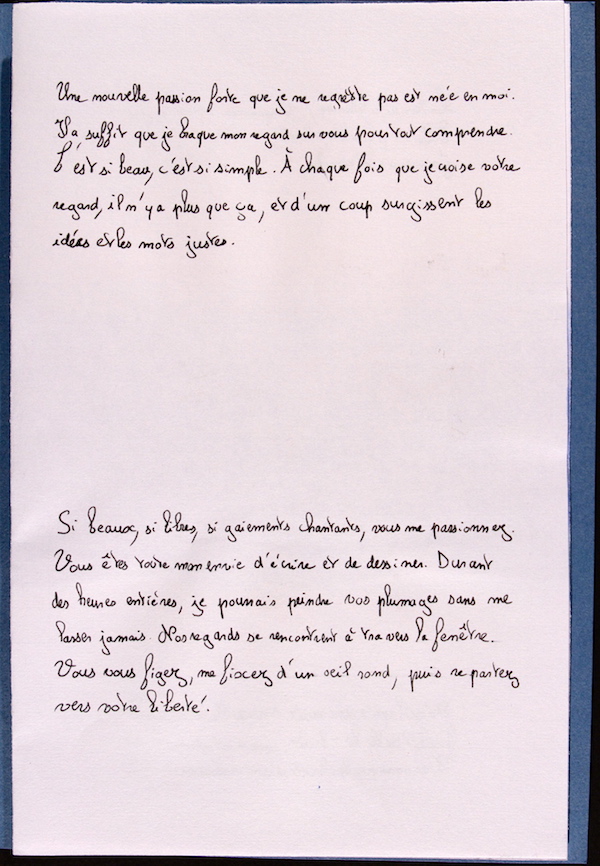 Une nouvelle passion forte que je ne regrette pas est née en moi.
Il a suffit que je braque mon regard sur vous pour tout comprendre.
C'est si beau, c'est si simple. À chaque fois que je croise votre
regard, il n'y a plus que ça, et d'un coup surgissent les
idées et les mots justes.
Si beaux, si libres, si gaiements chantants, vous me passionnez.
Vous êtes toute mon envie d'écrire et de dessiner. Durant
des heures entières, je pourrais peindre vos plumages sans me
lasser jamais. Nos regards se rencontrent à travers la fenêtre.
Vous vous figez, me fixez d'un oeil rond, puis repartez
vers votre liberté.